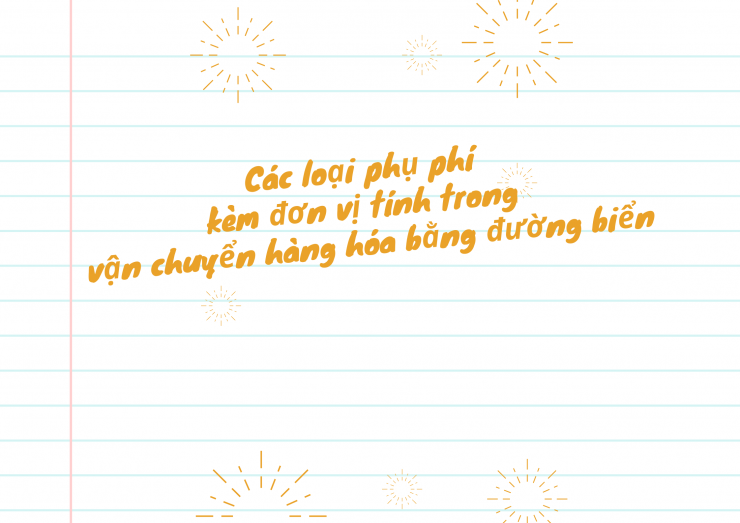 Các loại phụ phí
kèm đơn vị tính trong
vận chuyển hàng hóa bằng đường biển